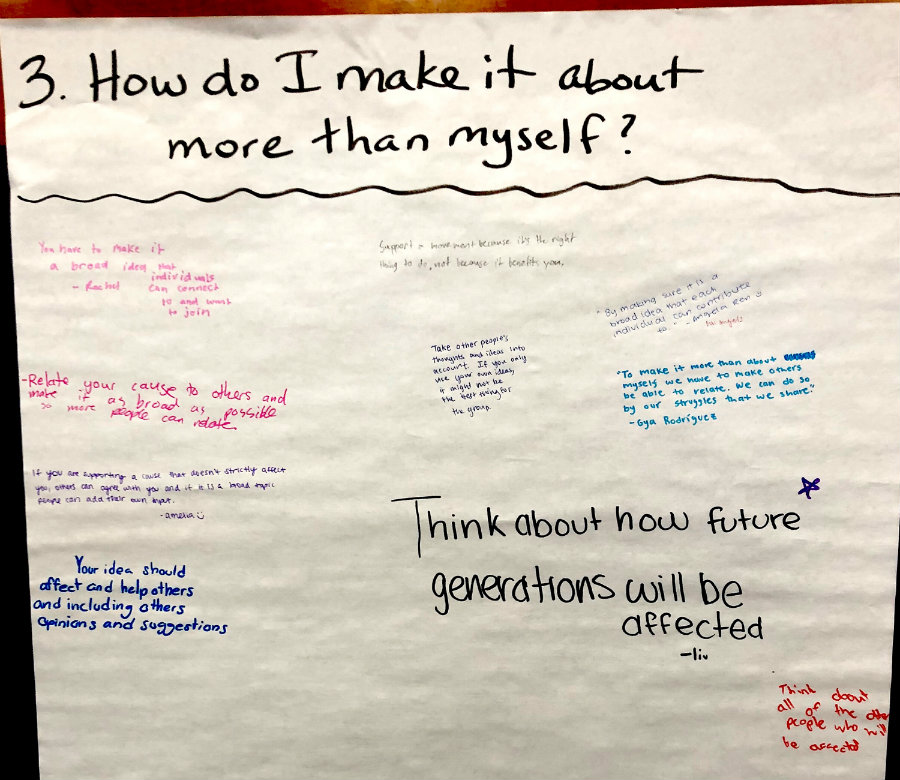 3. How do I make it about
more than myself?
You have to make it
a broad idea that
individuals
- Rachel can connect
to and want
to join
Support a movement because it's the right
thing to do, not because it benefits you.
"By making sure it is a
broad idea that each
individual can contribute
to." - Angela Ren
Take other people's
thoughts and ideas into
account. If you only
use your own ideas,
it might not be
the best thing for
the group.
"To make it more than about
myself we have to make others
be able to relate. We can do so
by our struggles that we share."
- Gya Rodríguez
-Relate your cause to others and
make it as broad as possible
so more people can relate.
If you are supporting a cause that doesn't strictly affect
you, others can agree with you and if it is a broad topic
people can add their own input.
-amelia
Your idea should
affect and help others
and including others
opinions and suggestions
Think about how future
generations will be
affected
-liv
Think about
all of the other
people who will
be affected